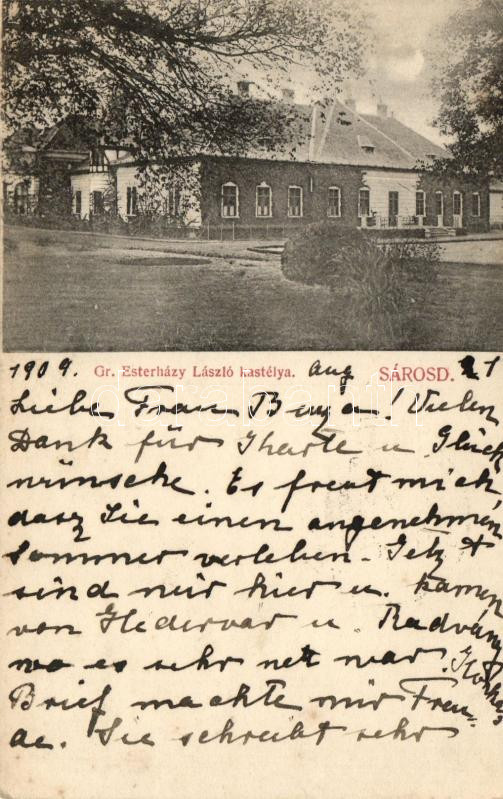 1909. Gr. Esterházy László kastélya. Aug SÁROSD. 21
Liebe Frau Buza! Vielen
Dank für Kharte u. Glück
wünsche. Es freut mich
dasz Sie einen angenehmen
Sommer verleben. Jetzt
sind wir hier u. kamen
von Hedervar u. Radvány
wo es sehr nett war.
Brief machte mir Freu-
de. Sie schreibt sehr